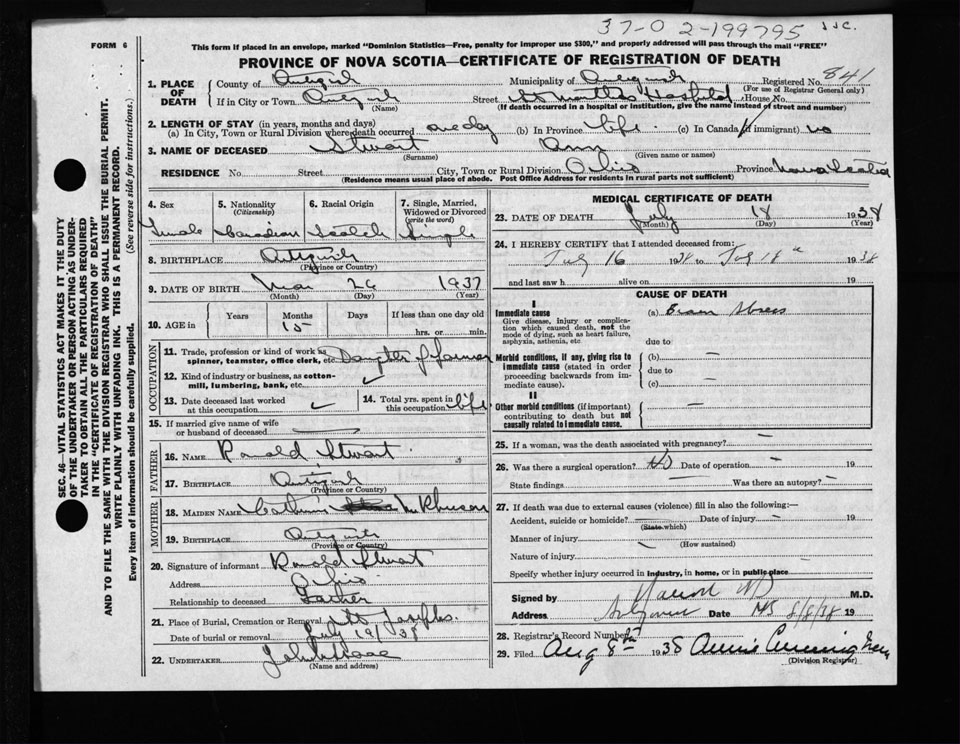 37-0 2-199795
FORM 6
This form if placed in an envelope, marked "Dominion Statistics—Free, penalty for improper use $300," and properly addressed will pass through the mail "FREE"
PROVINCE OF NOVA SCOTIA—CERTIFICATE OF REGISTRATION OF DEATH
SEC. 46—VITAL STATISTICS ACT MAKES IT THE DUTY
OF THE UNDERTAKER OR PERSON ACTING AS UNDER-
TAKER TO OBTAIN ALL THE PARTICULARS REQUIRED
IN THE "CERTIFICATE OF REGISTRATION OF DEATH"
AND TO FILE THE SAME WITH THE DIVISION REGISTRAR WHO SHALL ISSUE THE BURIAL PERMIT.
WRITE PLAINLY WITH UNFADING INK. THIS IS A PERMANENT RECORD.
Every item of information should be carefully supplied. (See reverse side for instructions.)
1. PLACE OF DEATH County of Antigonish Municipality of Antigonish Registered No. 841
(For use of Registrar General only)
If in City or Town Antigonish Street St Marthas Hospital House No.
(Name) (If death occurred in a hospital or institution, give the name instead of street and number)
2. LENGTH OF STAY (in years, months and days)
(a) In City, Town or Rural Division where death occurred one day (b) In Province life (c) In Canada (if immigrant) no
3. NAME OF DECEASED Stewart Ann
(Surname) (Given name or names)
RESIDENCE No. Street City, Town or Rural Division Ohio Province Nova Scotia
(Residence means usual place of abode. Post Office Address for residents in rural parts not sufficient)
4. Sex 5. Nationality (Citizenship) 6. Racial Origin 7. Single, Married, Widowed or Divorced (write the word)
Female Canadian Scotch Single
8. BIRTHPLACE Antigonish
(Province or Country)
9. DATE OF BIRTH Mar 26 1937
(Month) (Day) (Year)
10. AGE in Years Months Days If less than one day old
15 hrs. or min.
OCCUPATION
11. Trade, profession or kind of work as spinner, teamster, office clerk, etc. Daughter of farmer
12. Kind of industry or business, as cotton-mill, lumbering, bank, etc.
13. Date deceased last worked at this occupation 14. Total yrs. spent in this occupation life
15. If married give name of wife or husband of deceased
FATHER
16. NAME Ronald Stewart
17. BIRTHPLACE Antigonish
(Province or Country)
MOTHER
18. MAIDEN NAME Catherine
19. BIRTHPLACE Antigonish
(Province or Country)
20. Signature of informant Ronald Stewart
Address Ohio
Relationship to deceased Father
21. Place of Burial, Cremation or Removal St Josephs.
Date of burial or removal July 19/38
22. UNDERTAKER
(Name and address)
MEDICAL CERTIFICATE OF DEATH
23. DATE OF DEATH July 18 1938
(Month) (Day) (Year)
24. I HEREBY CERTIFY that I attended deceased from:
July 16 1938 to July 18 1938
and last saw h alive on 19
CAUSE OF DEATH
I
Immediate cause (a) Brain Abscess
Give disease, injury or complication which caused death, not the mode of dying, such as heart failure, asphyxia, asthenia, etc. due to
Morbid conditions, if any, giving rise to immediate cause (stated in order proceeding backwards from immediate cause). (b) —
due to
(c) —
II
Other morbid conditions (if important) contributing to death but not causally related to immediate cause. —
25. If a woman, was the death associated with pregnancy? —
26. Was there a surgical operation? No Date of operation — 19
State findings — Was there an autopsy? —
27. If death was due to external causes (violence) fill in also the following:—
Accident, suicide or homicide? — Date of injury — 19
(State which)
Manner of injury —
(How sustained)
Nature of injury —
Specify whether injury occurred in industry, in home, or in public place —
Signed by M.D.
Address Date 8/8/38 19
28. Registrar's Record Number
29. Filed Aug 8th 1938 Annie Cunningham
(Division Registrar)